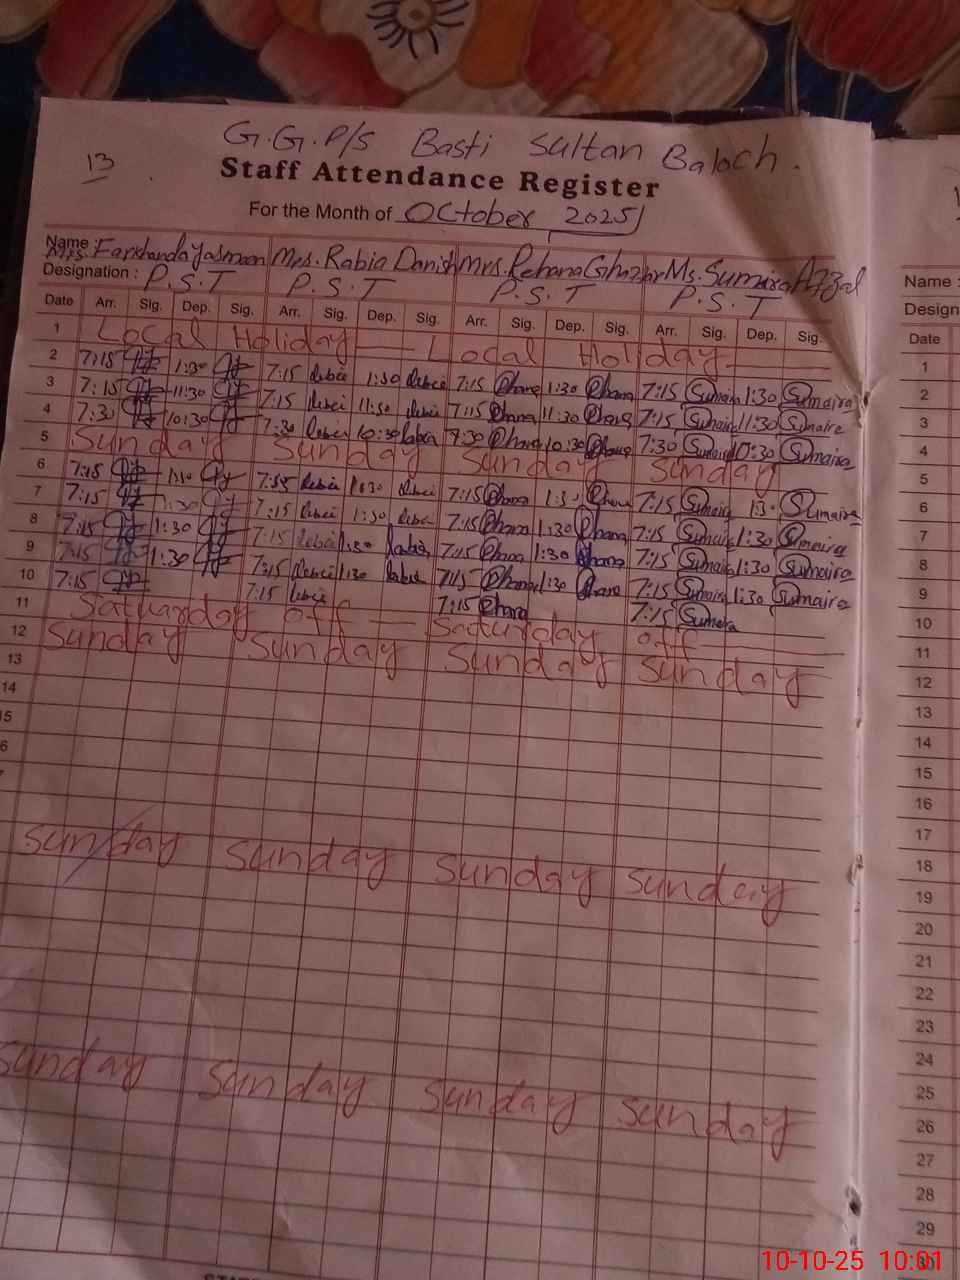 G.G.P/S Basti Sultan Baloch.
13
Staff Attendance Register
For the Month of October 2025
Name: Mrs. Farkhanda Yasmeen Mrs. Rabia Danish Mrs. Rehana Ghazfar Ms. Sumaira Afzal
Designation : P.S.T P.S.T P.S.T P.S.T
Date Arr. Sig. Dep. Sig. Arr. Sig. Dep. Sig. Arr. Sig. Dep. Sig. Arr. Sig. Dep. Sig.
1 Local Holiday Local Holiday
2 7:15 1:30 7:15 1:30 7:15 1:30 7:15 Sumaira 1:30 Sumaira
3 7:15 11:30 7:15 11:30 7:15 11:30 7:15 Sumaira 11:30 Sumaira
4 7:30 10:30 7:30 10:30 7:30 10:30 7:30 Sumaira 10:30 Sumaira
5 Sunday Sunday Sunday Sunday
6 7:15 1:30 7:15 1:30 7:15 1:30 7:15 Sumaira 1:30 Sumaira
7 7:15 1:30 7:15 1:30 7:15 1:30 7:15 Sumaira 1:30 Sumaira
8 7:15 1:30 7:15 1:30 7:15 1:30 7:15 Sumaira 1:30 Sumaira
9 7:15 1:30 7:15 1:30 7:15 1:30 7:15 Sumaira 1:30 Sumaira
10 7:15 7:15 7:15 7:15 Sumaira
11 Saturday off Saturday off
12 Sunday Sunday Sunday Sunday
13
14
15
6
Sunday Sunday Sunday Sunday
Sunday Sunday Sunday Sunday
Name :
Design
Date
1
2
3
4
5
6
7
8
9
10
11
12
13
14
15
16
17
18
19
20
21
22
23
24
25
26
27
28
29
30
10-10-25 10:01